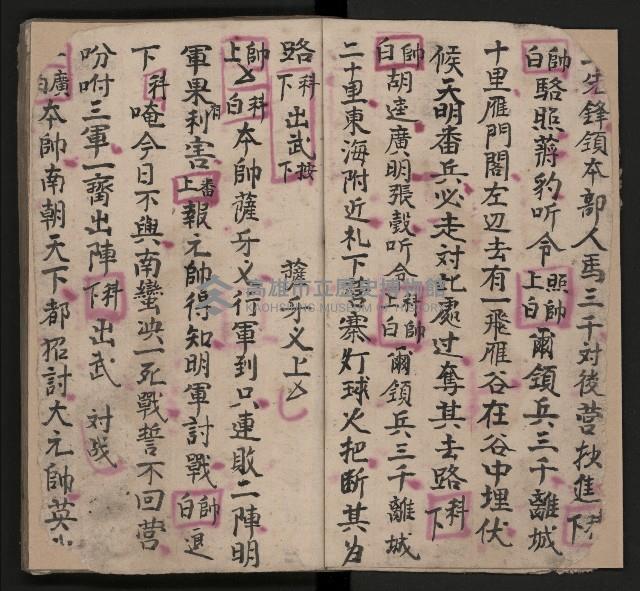 先鋒領本部人馬三千対後营抄進下
帥白駱照蔣豹听令照上帥白爾領兵三千離城
十里雁門閣左辺去有一飛雁谷在谷中埋伏
候天明番兵必走対此處过奪其去路科下
帥白胡逵廣明張彀听令科上帥白爾領兵三千離城
二十里東海附近札下营寨灯球火把断其为
路科下出武按下 薩牙义上
帥上科白本帥薩牙义行軍到只連敗二陣明
軍果有利害番上報元帥得知明軍討戰帥白退
下科唵今日不與南蠻决一死戰誓不回营
吩咐三軍一齊出陣科下出武 対战
廣白本帥南朝天下都招討大元帥英
高雄市立歷史博物館
KAOHSIUNG MUSEUM OF HISTORY